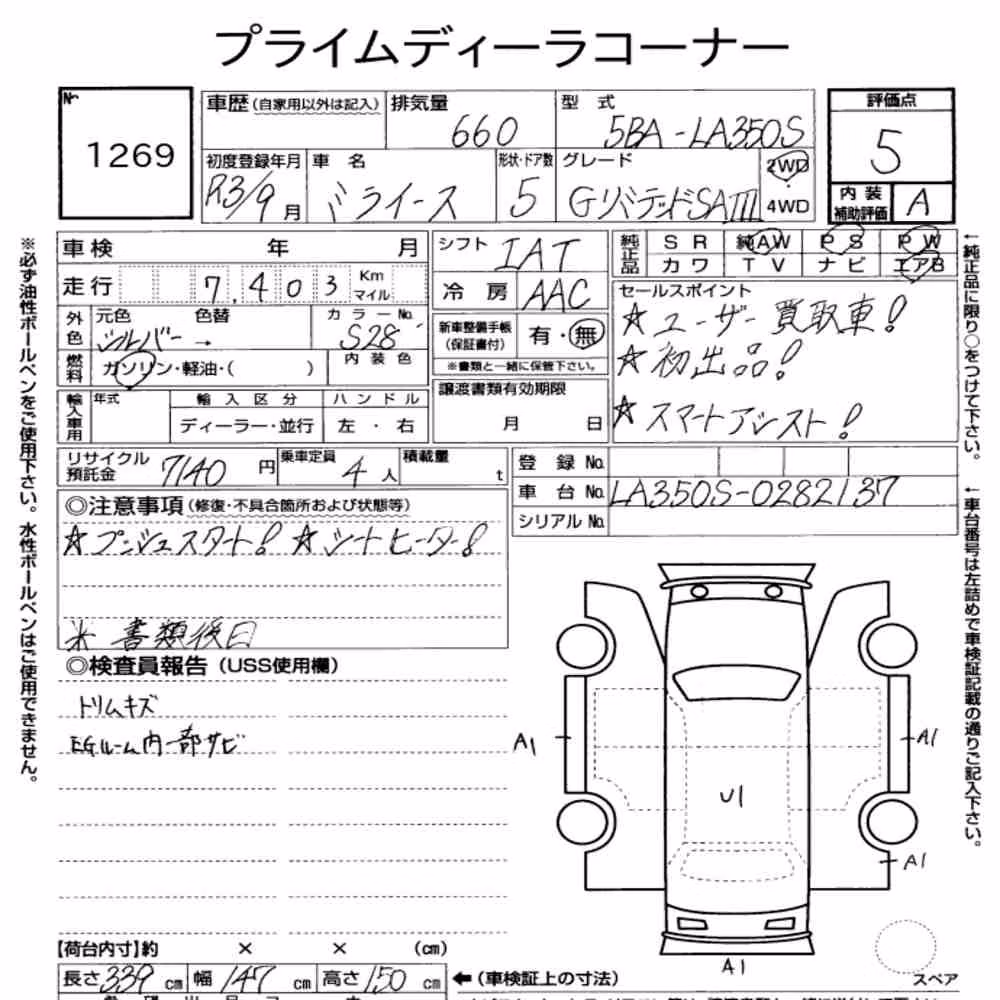 プライムディーラコーナー
№ 1269
車歴(自家用以外は記入) 排気量 660 型式 5BA-LA350S
評価点 5
初度登録年月 R3/9月 車名 ミライース 形状・ドア数 5 グレード GリミテッドSAIII 2WD・4WD
内装補助評価 A
車検 年 月
シフト IAT
純正品 SR 純AW PS PW
カワ TV ナビ エアB
走行 7,403 Km マイル
冷房 AAC
セールスポイント
☆ユーザー買取車!
☆初出品!
☆スマートアシスト!
外色 元色 シルバー → 色替 カラーNo. S28
新車整備手帳(保証書付) 有・無
※書類と一緒に保管下さい。
燃料 ガソリン・軽油・( ) 内装色
譲渡書類有効期限 月 日
輸入車用 年式 輸入区分 ハンドル
ディーラー・並行 左・右
リサイクル預託金 7140円 乗車定員 4人 積載量 t
登録No.
車台No. LA350S-0282137
シリアルNo.
◎注意事項(修復・不具合箇所および状態等)
☆プッシュスタート! ☆シートヒーター!
※書類後日
◎検査員報告(USS使用欄)
トリムキズ
EGルーム内一部サビ
A1
A1
U1
A1
A1
スペア
【荷台内寸】約 × × (cm)
長さ 339 cm 幅 147 cm 高さ 150 cm ←(車検証上の寸法)
※必ず油性ボールペンをご使用下さい。水性ボールペンはご使用できません。
←純正品に限り○をつけて下さい。
←車台番号は左詰めで車検証記載の通りご記入下さい。